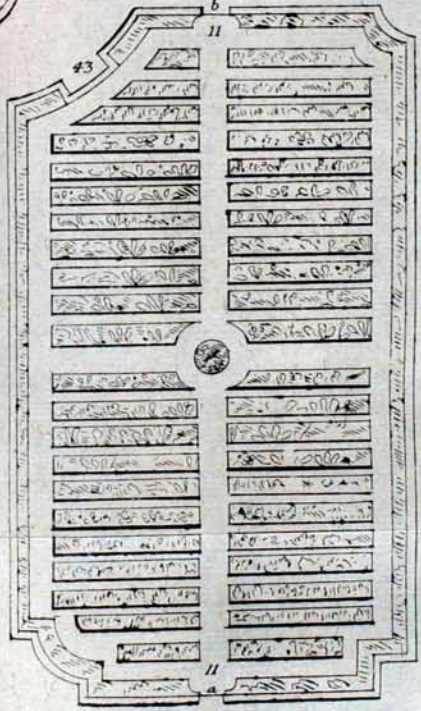 b
11
43
11
a